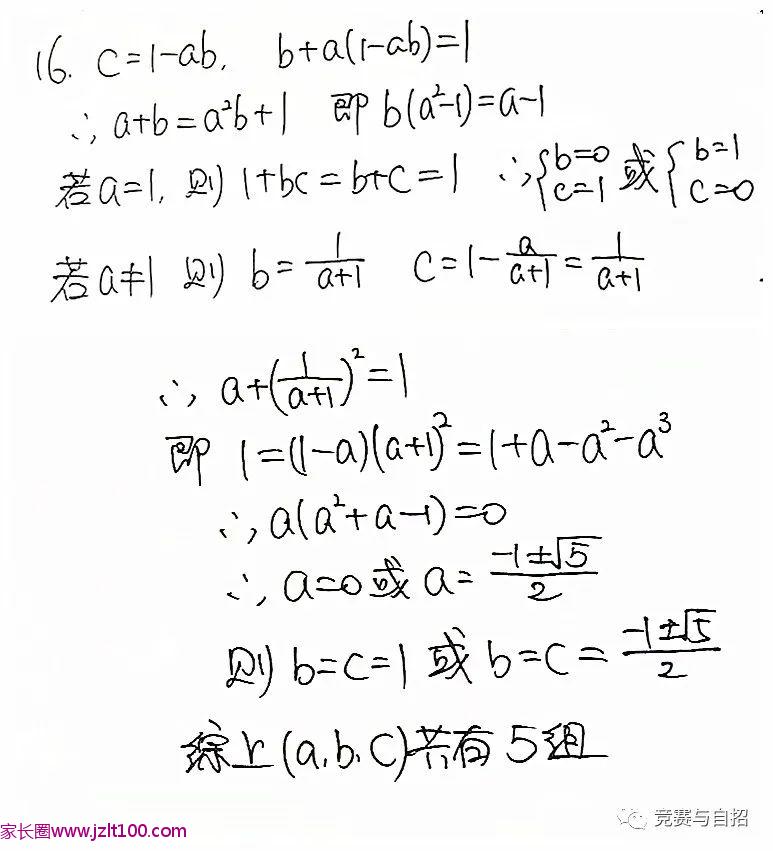 16. c=1-ab, b+a(1-ab)=1
∴ a+b=a²b+1 即 b(a²-1)=a-1
若a=1, 则 1+bc=b+c=1 ∴{b=0 c=1 或{b=1 c=0
若a≠1 则 b=1/(a+1) c=1-a/(a+1)=1/(a+1)
∴ a+(1/(a+1))²=1
即 1=(1-a)(a+1)²=1+a-a²-a³
∴ a(a²+a-1)=0
∴ a=0或a=(-1±√5)/2
则 b=c=1 或 b=c=(-1±√5)/2
综上(a,b,c)共有5组
竞赛与自招
家长圈www.jzlt100.com